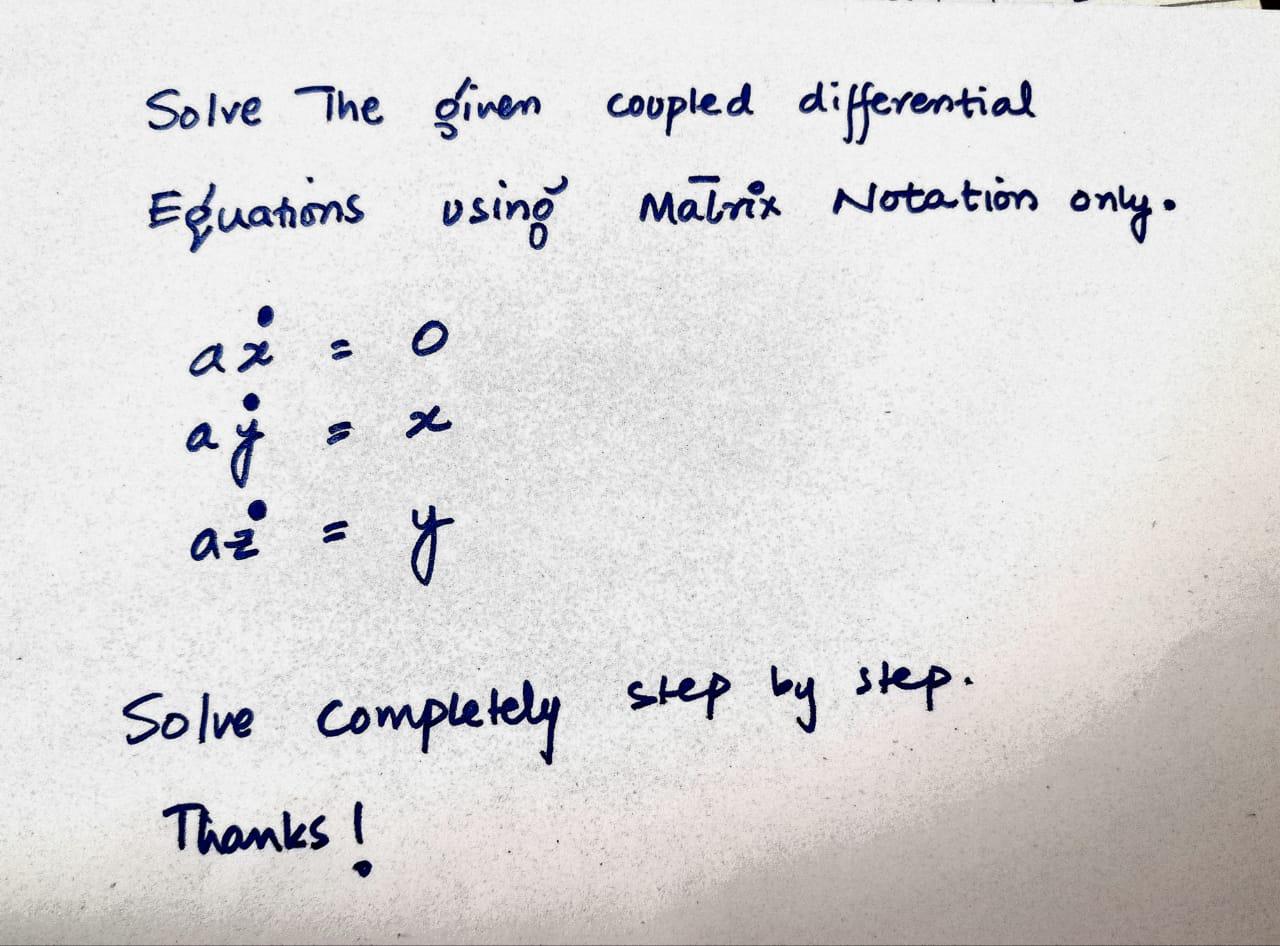 Solve The given coupled differential
Equations using Matrix Notation only.
aẋ = 0
aẏ = x
aż = y
Solve completely step by step.
Thanks!